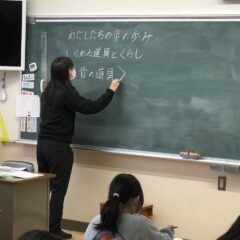 わたしたちの市の歩み
しりわる道具とくらし
昔の道具＞